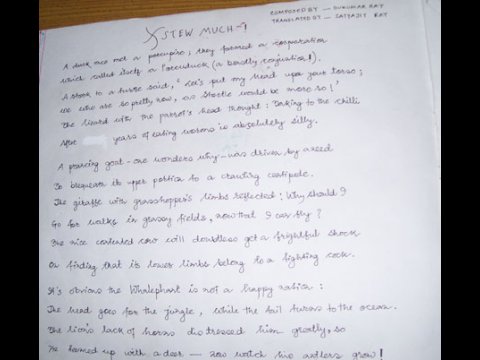 COMPOSED BY - SUKUMAR RAY
TRANSLATED BY - SATYAJIT RAY
STEW MUCH -!
A duck once met a porcupine; they formed a corporation
which called itself a Porcuduck (a beastly conjugation!).
A stork to a turtle said, "Let's put my head upon your torso;
We who are so pretty now, as Stortle would be more so!"
The lizard with the parrot's head thought: Taking to the chilli
After years of eating worms is absolutely silly.
A prancing goat - one wonders why - was driven by a need
To bequeath its upper portion to a crawling centipede.
The giraffe with grasshopper's limbs reflected: Why should I
Go for walks in grassy fields, now that I can fly?
The nice contented cow will doubtless get a frightful shock
On finding that its lower limbs belong to a fighting cock.
It's obvious the Whalephant is not a happy notion:
The head goes for the jungle, while the tail turns to the ocean.
The lion's lack of horns distressed him greatly, so
He teamed up with a deer - now watch his antlers grow!